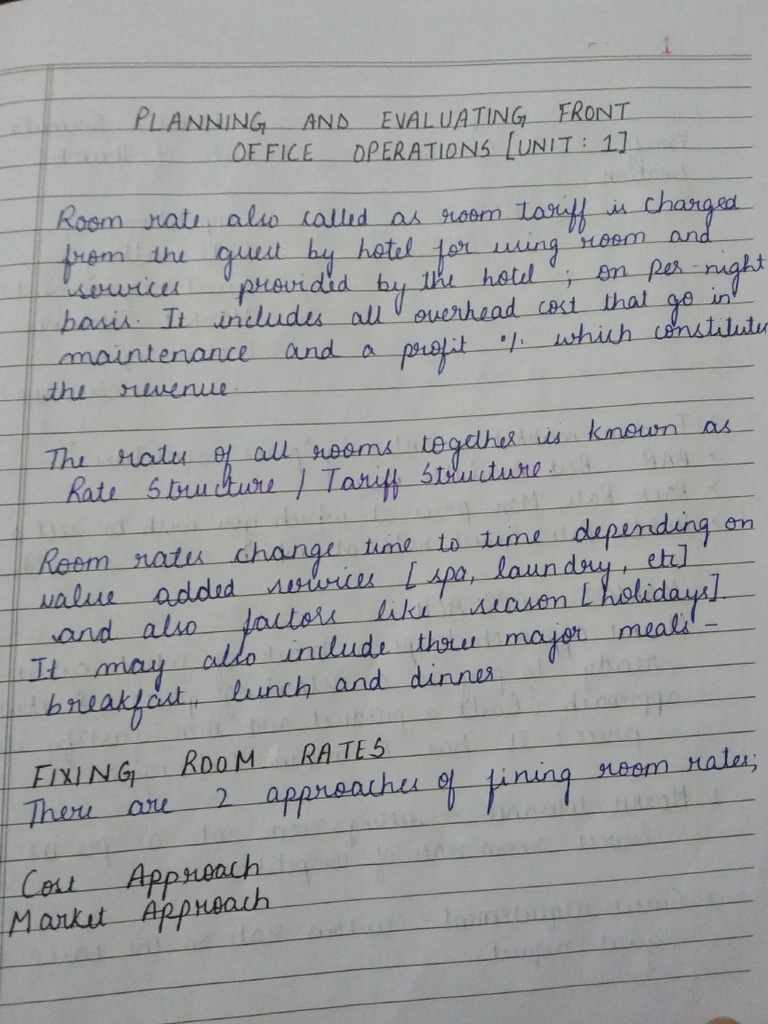 1
PLANNING AND EVALUATING FRONT
OFFICE OPERATIONS [UNIT : 1]
Room rate also called as room tariff is charged
from the guest by hotel for using room and
services provided by the hotel ; on per-night
basis. It includes all overhead cost that go in
maintenance and a profit % which constitutes
the revenue.
The rates of all rooms together is known as
Rate Structure / Tariff Structure.
Room rates change time to time depending on
value added services [spa, laundry, etc]
and also factors like season [holidays].
It may also include three major meals -
breakfast, lunch and dinner
FIXING ROOM RATES
There are 2 approaches of fixing room rates;
Cost Approach
Market Approach